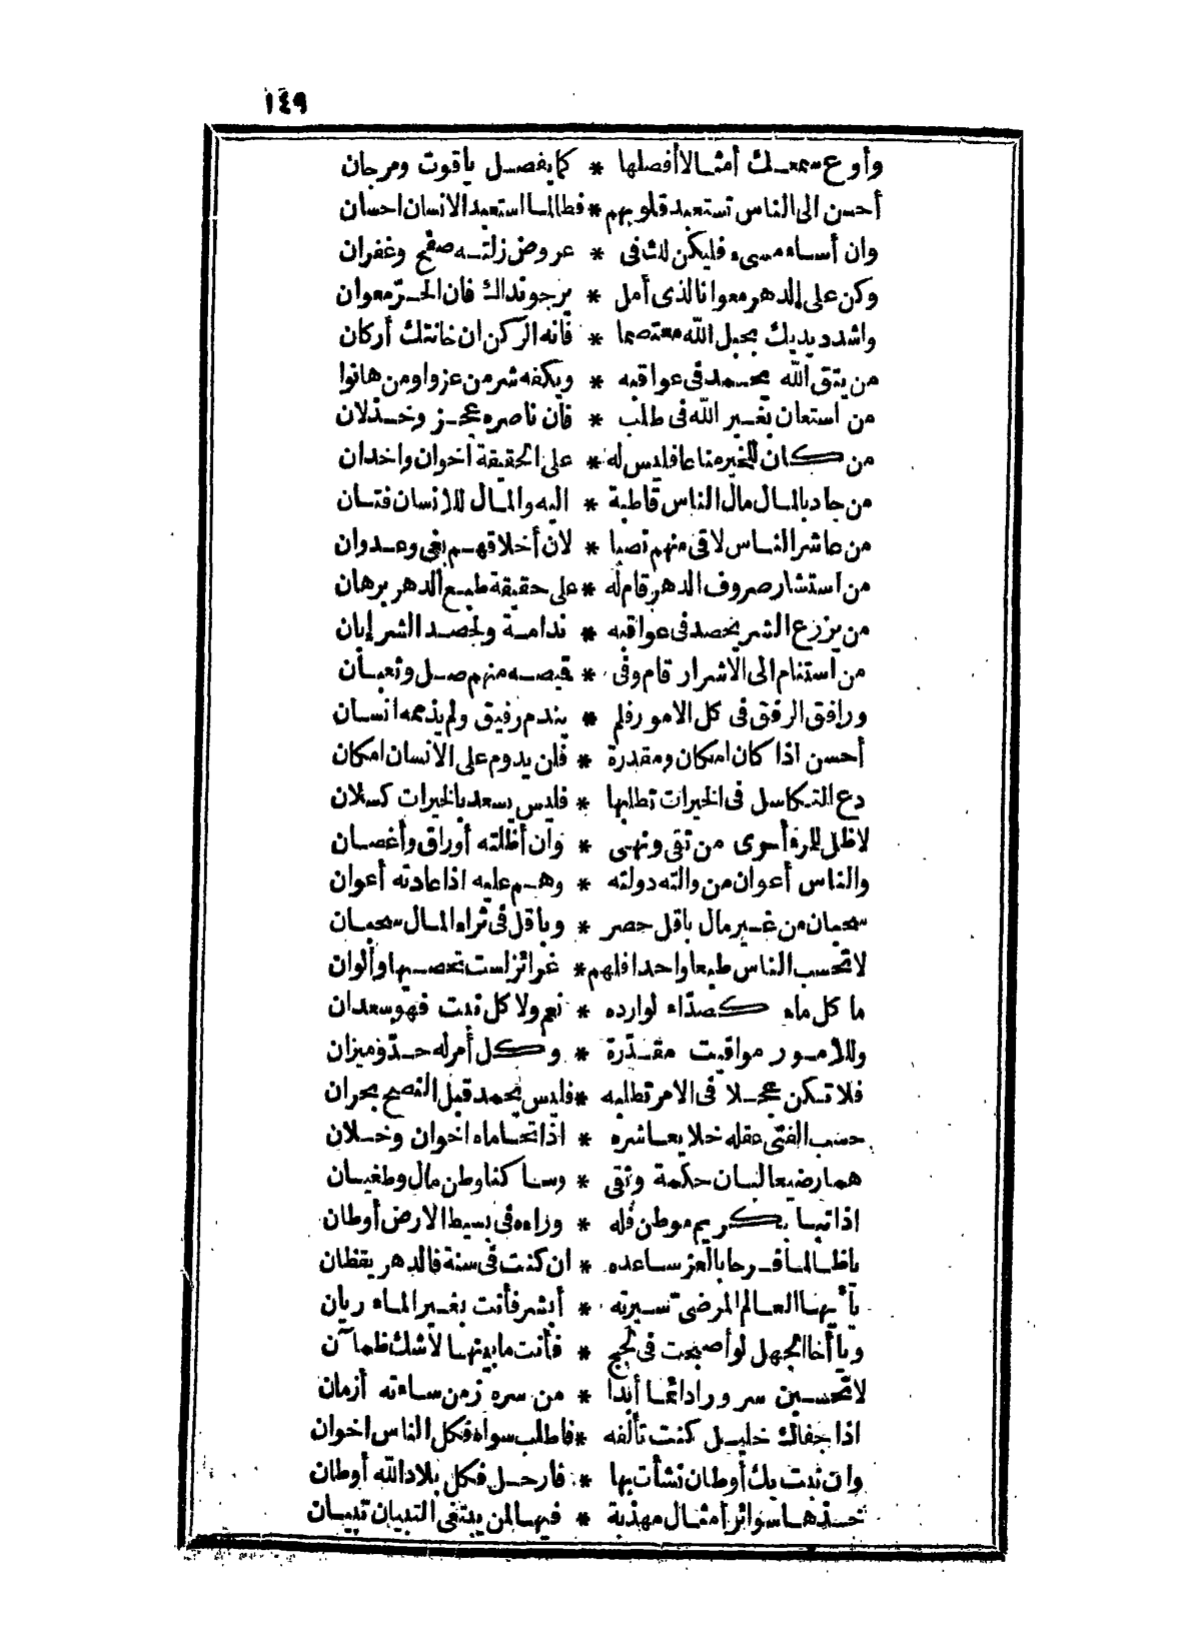 ١٤٩
وأوع سمعك أمثالا أفصلها * كما يفصل ياقوت ومرجان
أحسن الى الناس تستعبد قلوبهم * فطالما استعبد الانسان احسان
وان أساء مسىء فليكن لك فى * عروض زلته صفح وغفران
وكن على الدهر معوانا لذى أمل * يرجو نداك فان الحرّ معوان
واشدد يديك بحبل الله معتصما * فانه الركن ان خانتك أركان
من يتق الله يحمد فى عواقبه * ويكفه شر من عزوا ومن هانوا
من استعان بغير الله فى طلب * فان ناصره عجز وخذلان
من كان للخير مناعا فليس له * على الحقيقة أخوان واخدان
من جاد بالمال مال الناس قاطبة * اليه والمال للانسان فتان
من عاشر الناس لاقى منهم نصبا * لان أخلاقهم بغى وعدوان
من استشار صروف الدهر قام له * على حقيقة طبع الدهر برهان
من يزرع الشر يحصد فى عواقبه * ندامة ولحصد الشر إبان
من استنام الى الاشرار قام وفى * قيصه منهم صل وثعبان
ورافق الرفق فى كل الامور فلم * يندم رفيق ولم يذممه انسان
أحسن اذا كان امكان ومقدرة * فلن يدوم على الانسان امكان
دع التكاسل فى الخيرات تطلبها * فليس يسعد بالخيرات كسلان
لا ظل للمرء أحوى من تقى ونهى * وان أظلته أوراق وأغصان
والناس أعوان من والته دولته * وهم عليه اذا عادته أعوان
سحبان من غير مال باقل حصر * وباقل فى ثراء المال سحبان
لا تحسب الناس طبعا واحدا فلهم * غرائز لست تحصيها وألوان
ما كل ماء كصدّاء لوارده * نعم ولا كل نبت فهو سعدان
وللامور مواقيت مقدّرة * وكل أمر له حدّ وميزان
فلا تكن عجلا فى الامر تطلبه * فليس يحمد قبل النضج بحران
حسب الفتى عقله خلا يعاشره * اذا تحاماه اخوان وخلان
هما رضيعا لبان حكمة وتقى * وساكنا وطن مال وطغيان
اذا نبا بكريم موطن فله * وراءه فى بسيط الارض أوطان
يا ظالما فرحا بالعز ساعده * ان كنت فى سنة فالدهر يقظان
يا أيها العالم المرضى سيرته * أبشر فأنت بغير الماء ريان
ويا أخا الجهل لو أصبحت فى لجج * فأنت ما بينها لا شك ظمآن
لا تحسبن سرورا دائما أبدا * من سره زمن ساءته أزمان
اذا جفاك خليل كنت تألفه * فاطلب سواه فكل الناس اخوان
وان نبت بك أوطان نشأت بها * فارحل فكل بلاد الله أوطان
خذها سوائر أمثال مهذبة * فيها لمن يبتغى التبيان تبيان